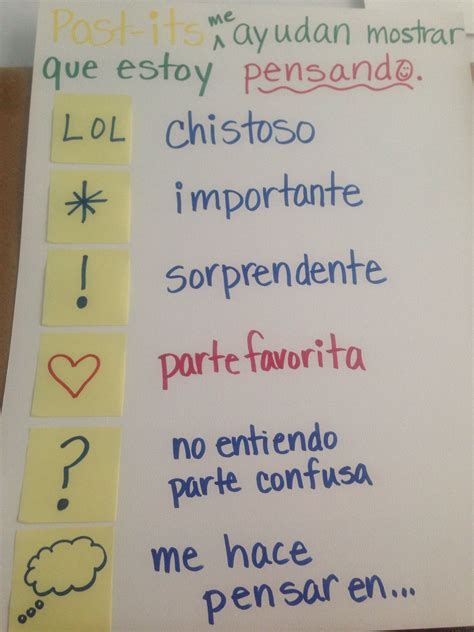 Post-its me ayudan mostrar
que estoy pensando.
LOL chistoso
* importante
! sorprendente
parte favorita
? no entiendo
parte confusa
me hace
pensar en...